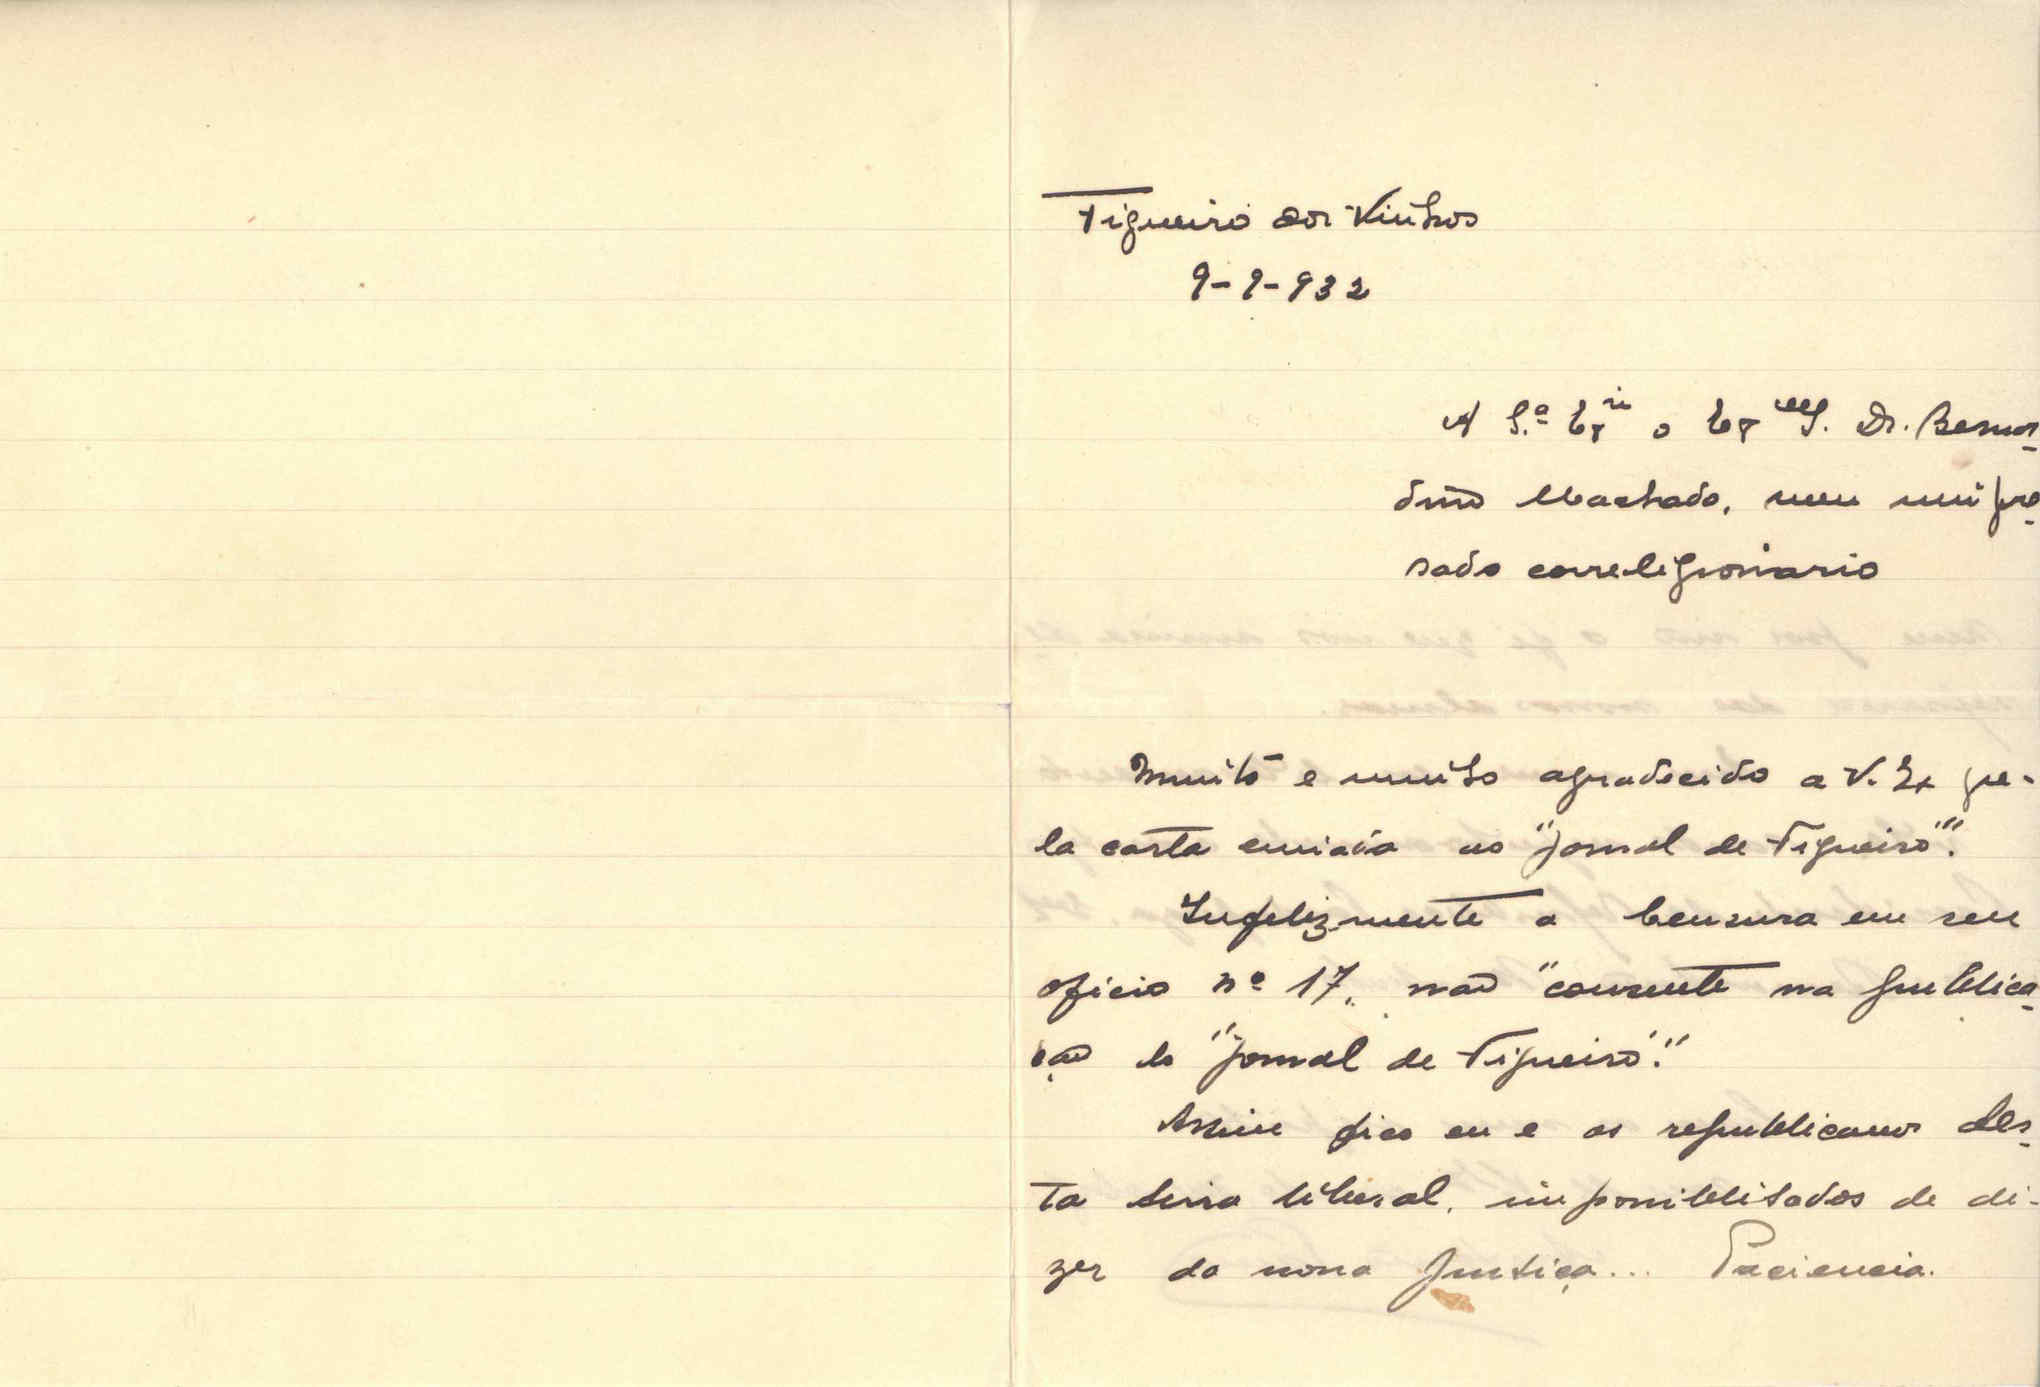 Figueiró dos Vinhos
9-9-932
A S.ª Ex.ª o Ex.mo S. Dr. Bernar-
dino Machado, meu mui pre-
sado correligionario
Muito e muito agradecido a V. Ex pe-
la carta enviada ao "Jornal de Figueiró".
Infelizmente a Censura em seu
oficio nº 17, não "consente na publica-
ção do "Jornal de Figueiró".
Assim fico eu e os republicanos des-
ta terra liberal, impossibilitados de di-
zer da nossa justiça... Paciencia.